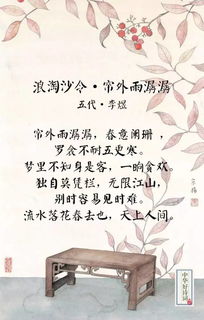 浪淘沙令·帘外雨潺潺
五代·李煜
帘外雨潺潺，春意阑珊，
罗衾不耐五更寒。
梦里不知身是客，一晌贪欢。
独自莫凭栏，无限江山，
别时容易见时难。
流水落花春去也，天上人间。
中华好诗词